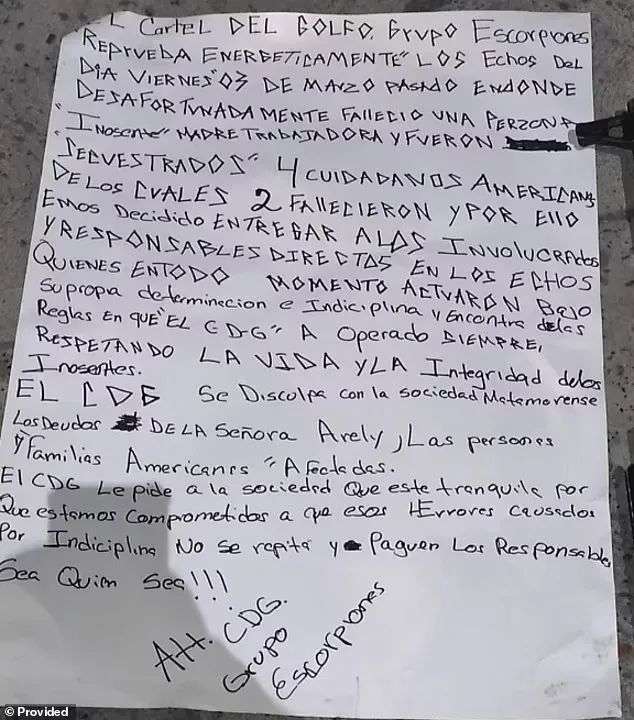 EL Cartel DEL GOLFO, Grupo Escorpiones
REPRUEBA ENERGETICAMENTE" LOS Echos DEL
DIA VIERNES "03 DE MARZO PASADO ENDONDE
DESAFORTUNADA MENTE FALLECIO UNA PERZONA
"INOSENTE" MADRE TRABAJADORA Y FUERON
SECUESTRADOS" 4 CUIDADANOS AMERICANS
DE LOS CUALES 2 FALLECIERON Y POR ELLO
Emos DECIDIDO ENTREGAR A LOS INVOLUCRADOS
Y RESPONSABLES DIRECTOS EN LOS ECHOS
QUIENES EN TODO MOMENTO ACTUARON BAJO
su propa determinacion e Indiciplina y Encontra delas
Reglas En que "EL CDG" A Operado SIEMPRE,
RESPETANDO LA VIDA Y LA Integridad delos
Inosentes.
EL CDG Se Disculpa con la sociedad Matamorense
Los Deudos DE LA Señora Arely, Las personas
Y familias Americanas "Afectadas.
El CDG Le pide a la sociedad Que este tranquila por
Que estamos comprometidos a que esos Errores causados
Por Indiciplina No se repita y Paguen Los Responsables
Sea Quien Sea!!!
Att. CDG.
Grupo
Escorpiones
Provided